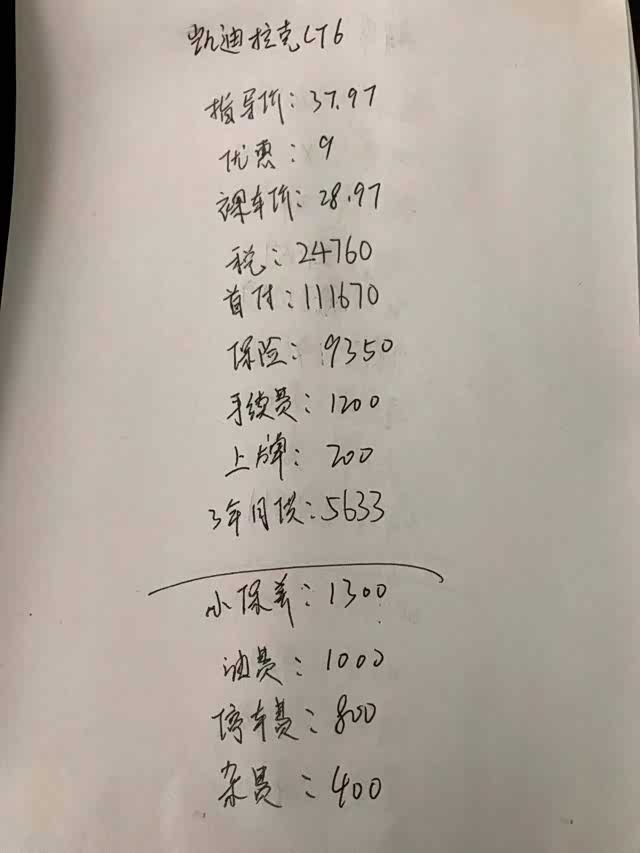 凯迪拉克CT6
指导价：37.97
优惠：9
裸车价：28.97
税：24760
首付：111670
保险：9350
手续费：1200
上牌：200
3年月供：5633
小保养：1300
油费：1000
停车费：800
杂费：400